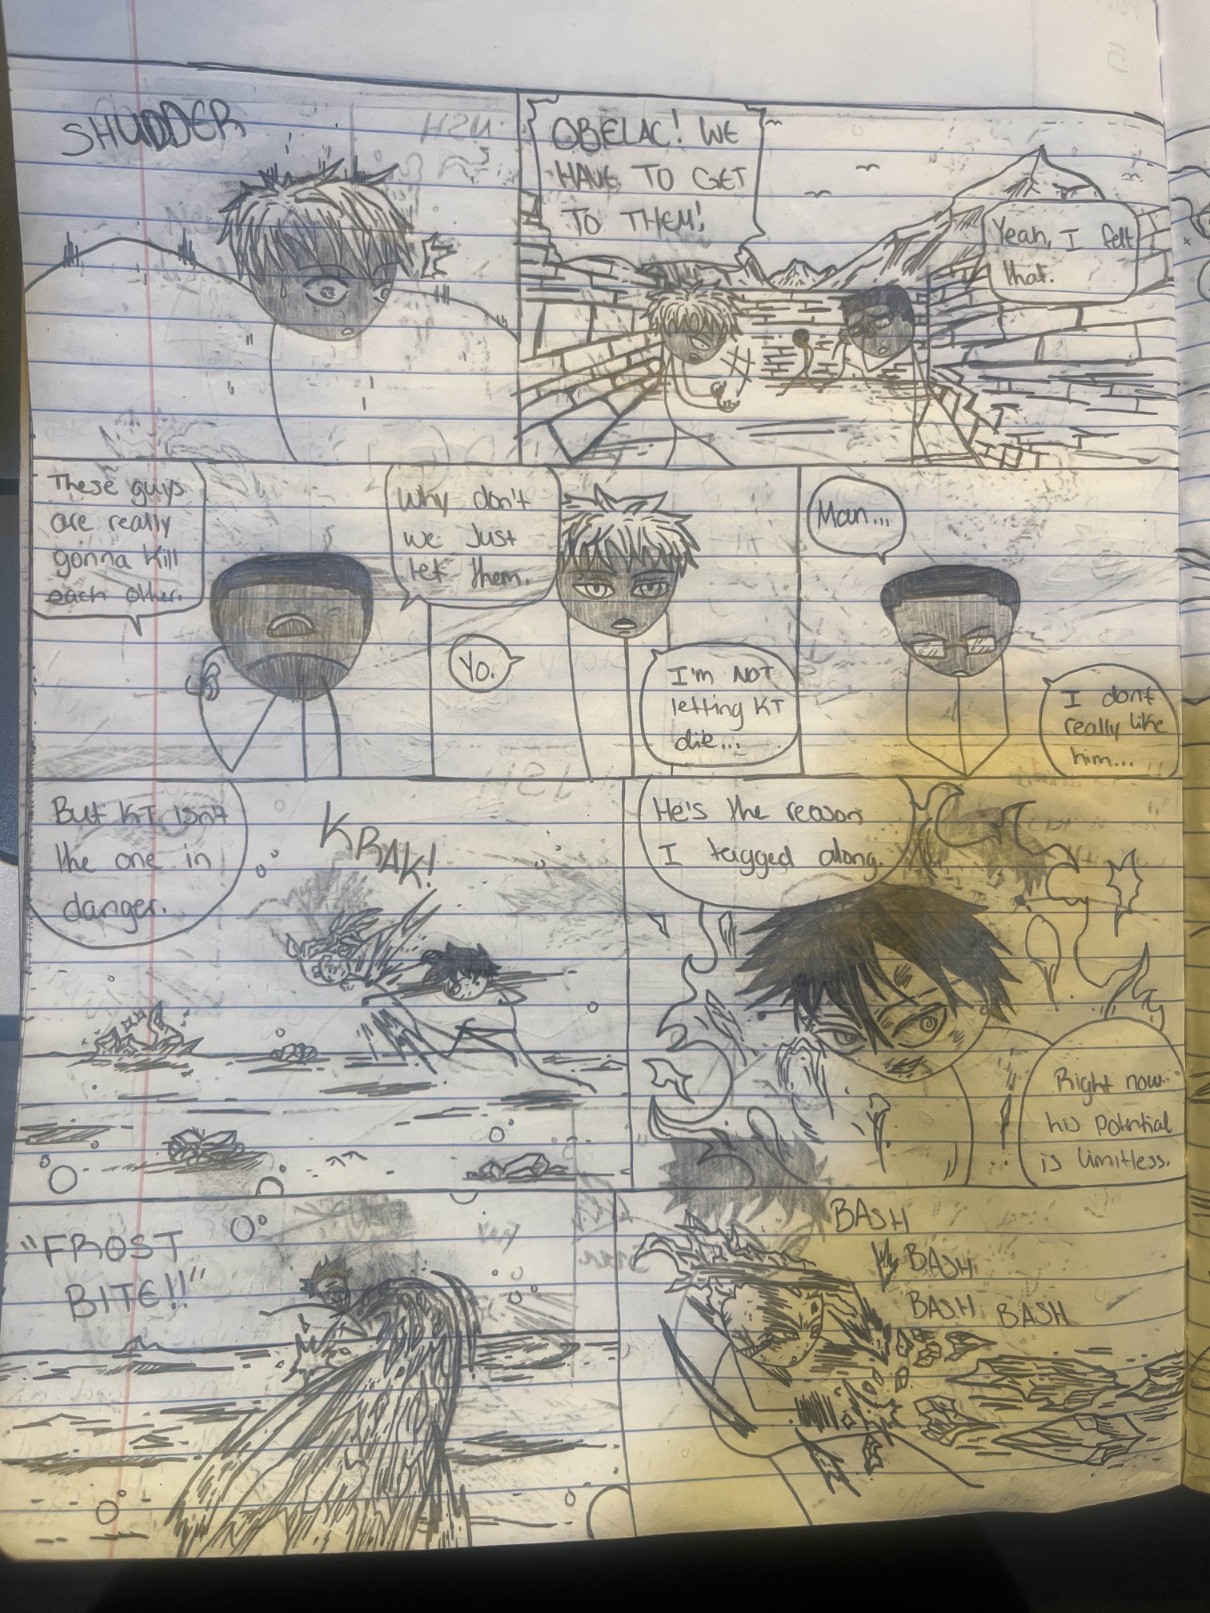 SHUDDER
OBELAC! WE
HAVE TO GET
TO THEM!
Yeah, I felt
that.
These guys
are really
gonna kill
each other.
Why don't
we just
let them.
Yo.
I'm NOT
letting KT
die...
Man...
I don't
really like
him...
But KT isn't
the one in
danger.
KRAK!
He's the reason
I tagged along.
Right now
his potential
is limitless.
"FROST
BITE!!"
BASH
BASH
BASH BASH